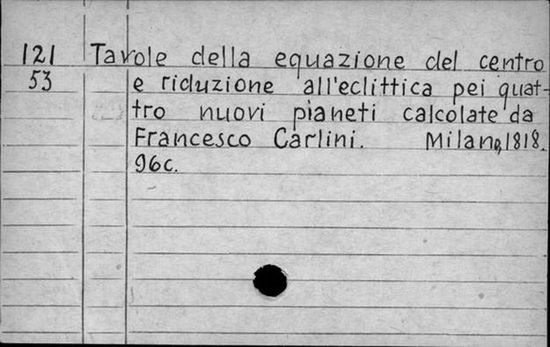 121 Tavole della equazione del centro
53 e riduzione all'eclittica pei quat-
tro nuovi pianeti calcolate da
Francesco Carlini. Milano, 1818.
96c.